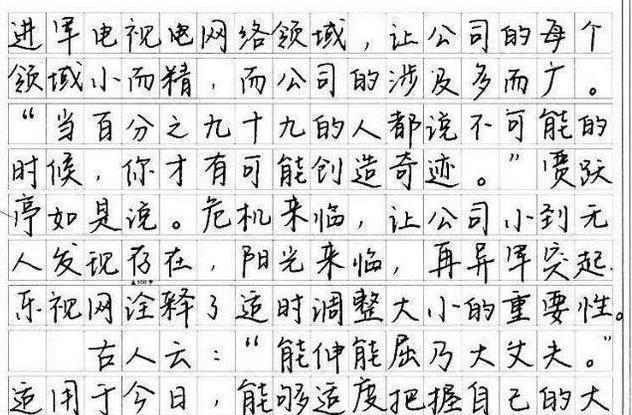 进军电视电网络领域，让公司的每个
领域小而精，而公司的涉及多而广。
“当百分之九十九的人都说不可能的
时候，你才有可能创造奇迹。”贾跃
亭如是说。危机来临，让公司小到无
人发现存在，阳光来临，再异军突起.
乐视网诠释了适时调整大小的重要性。
古人云：“能伸能屈乃大丈夫。”
适用于今日，能够适度把握自己的大